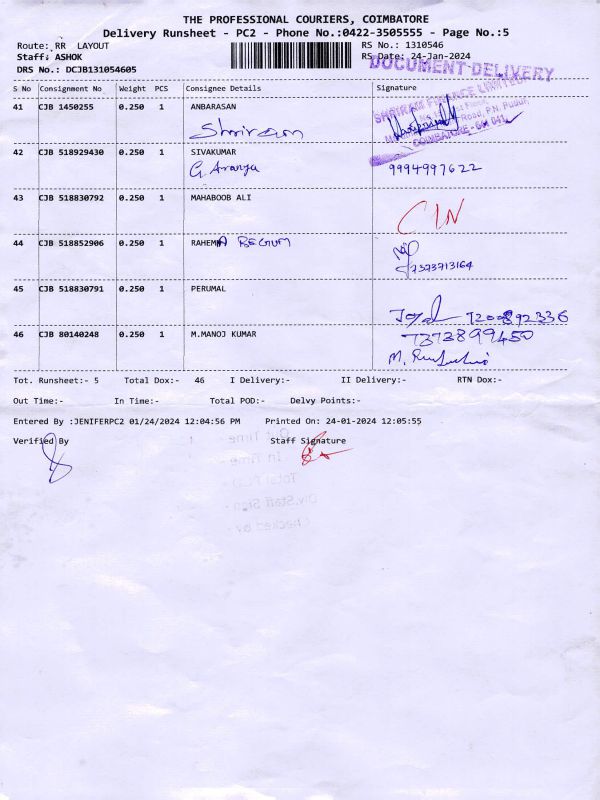 THE PROFESSIONAL COURIERS, COIMBATORE
Delivery Runsheet - PC2 - Phone No.:0422-3505555 - Page No.:5
Route: RR LAYOUT RS No.: 1310546
Staff: ASHOK RS Date: 24-Jan-2024
DRS No.: DCJB131054605
DOCUMENT DELIVERY
S No Consignment No Weight PCS Consignee Details Signature
SHRIRAM FINANCE LIMITED
41 CJB 1450255 0.250 1 ANBARASAN
Road, P.N. Pudur,
Shriram COIMBATORE - 641 041.
42 CJB 518929430 0.250 1 SIVAKUMAR
G. Aranya 9994997622
43 CJB 518830792 0.250 1 MAHABOOB ALI
CIN
44 CJB 518852906 0.250 1 RAHEMA BEGUM
7373713164
45 CJB 518830791 0.250 1 PERUMAL
7200892336
46 CJB 80140248 0.250 1 M.MANOJ KUMAR 7373899450
M.
Tot. Runsheet:- 5 Total Dox:- 46 I Delivery:- II Delivery:- RTN Dox:-
Out Time:- In Time:- Total POD:- Delvy Points:-
Entered By :JENIFERPC2 01/24/2024 12:04:56 PM Printed On: 24-01-2024 12:05:55
Verified By Staff Signature
Out Time -
In Time -
Total POD
Div.Staff Sign -
Checked by -